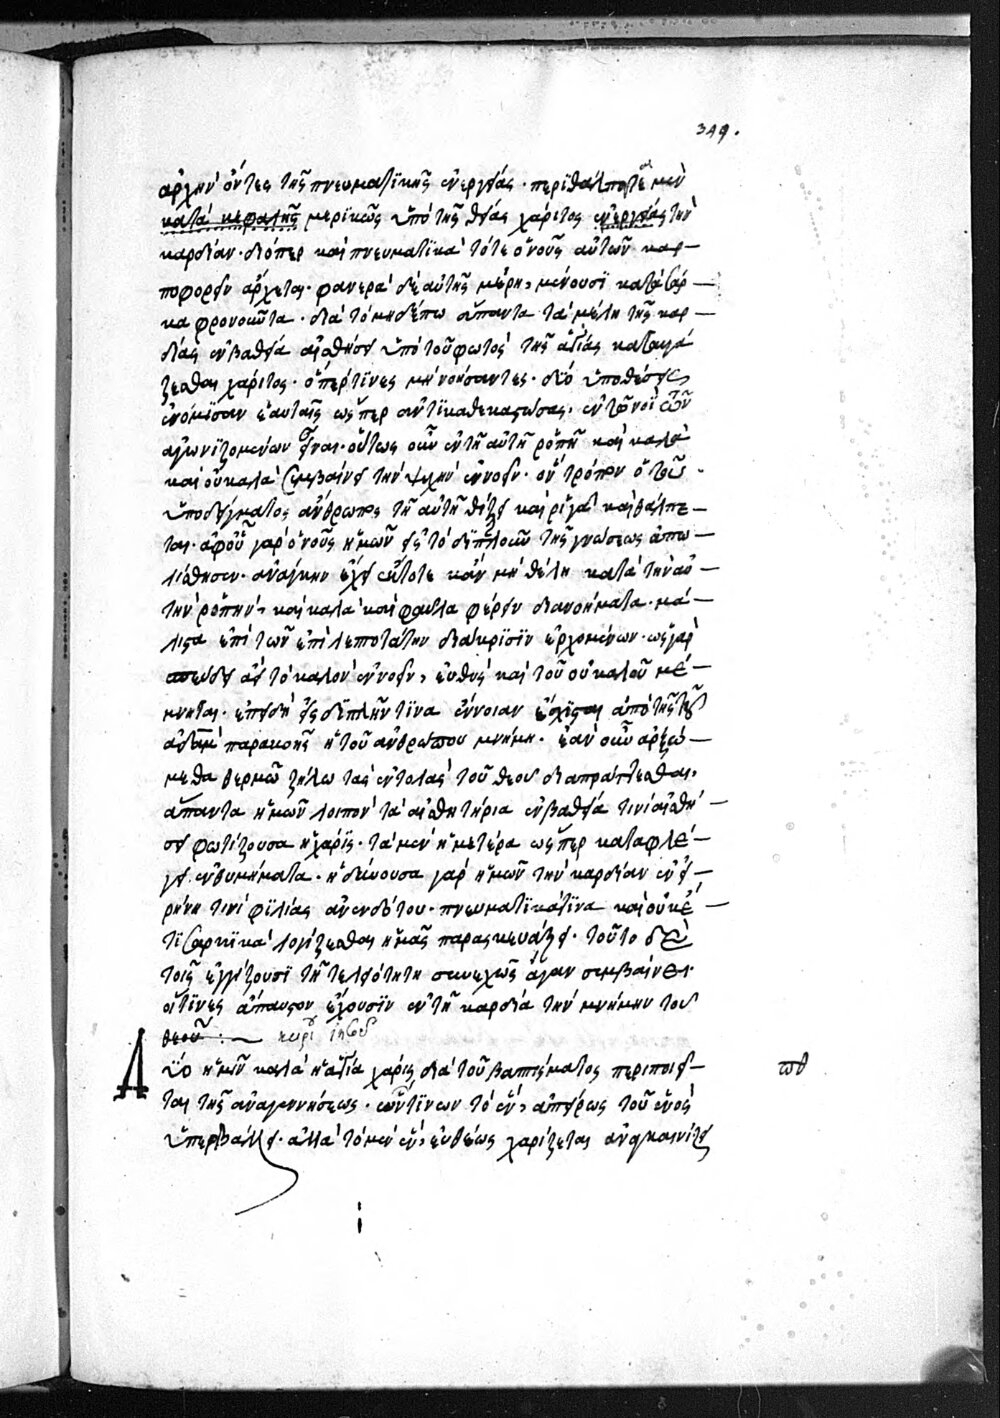 349.
ἀρχὴν ὄντες τῆς πνευματϊκῆς ἐνεργείας · περϊθάλπονται μὲν
κατὰ κεφαλῆς μερϊκῶς ὑπὸ τῆς θείας χάριτος ἐνεργείας τὴν
καρδίαν · διόπερ καὶ πνευματϊκὰ τότε ὁ νοῦς αὐτῶν καρ–
ποφορεῖν ἄρχεται · φανερὰ δὲ αὐτῆς μέρη, μένουσϊ κατὰ σάρ–
κα φρονοῦντα · διὰ τὸ μηδέπω ἅπαντα τὰ μέλη τῆς καρ–
δίας ἐν βαθείᾳ αἰσθήσει ὑπὸ τοῦ φωτὸς τῆς ἁγίας καταυγά
ζεσθαι χάριτος · ὅπερ τϊνες μὴ νοήσαντες · δύο ὑποθέσεις
ἐνόμϊσαν ἑαυταῖς ὥσπερ ἀντϊκαθεστώσας · ἐν τῷ νοῒ τῶν
ἀγωνϊζομένων εἶναι · οὕτως οὖν ἐν τῇ αὐτῇ ῥοπῇ καὶ καλὰ
καὶ οὐ καλὰ συμβαίνει τὴν ψυχὴν ἐννοεῖν · ὃν τρόπον ὁ τοῦ
ὑποδείγματος ἄνθρωπος τῇ αὐτῇ θίξει καὶ ῥιγᾷ καὶ θάλπε–
ται · ἀφοῦ γὰρ ὁ νοῦς ἡμῶν εἰς τὸ διπλοῦν τῆς γνώσεως ἀπω–
λίσθησεν · ἀνάγκην ἔχει ἔκτοτε κἂν μὴ θέλῃ κατὰ τὴν αὐ–
τὴν ῥοπὴν, καὶ καλὰ καὶ φαῦλα φέρειν διανοήματα · μά–
λιστα ἐπὶ τῶν ἐπὶ λεπτοτάτην διάκρϊσϊν ἐρχομένων · ὡς γὰρ
σπεύδει ἀεὶ τὸ καλὸν ἐννοεῖν, εὐθὺς καὶ τοῦ οὐ καλοῦ μέ–
μνηται · ἐπειδὴ εἰς διπλῆν τϊνα ἔννοιαν ἔσχϊσται ἀπὸ τῆς τοῦ
ἀδὰμ παρακοῆς ἡ τοῦ ἀνθρώπου μνήμη · ἐὰν οὖν ἀρξώ–
μεθα θερμῷ ζήλῳ τὰς ἐντολὰς τοῦ θεοῦ διαπράττεσθαι,
ἅπαντα ἡμῶν λοιπὸν τὰ αἰσθητήρια ἐν βαθείᾳ τινὶ αἰσθή–
σει φωτίζουσα ἡ χάρϊς · τὰ μὲν ἡμέτερα ὥσπερ καταφλέ–
γει ἐνθυμήματα · ἡδύνουσα γὰρ ἡμῶν τὴν καρδίαν ἐν εἰ–
ρήνῃ τινὶ φϊλίας ἀνενδότου · πνευματϊκά τϊνα καὶ οὐκέ–
τϊ σαρκϊκὰ λογίζεσθαι ἡμᾶς παρασκευάζει · τοῦτο δὲ
τοῖς ἐγγίζουσϊ τῇ τελειότητϊ συνεχῶς ἄγαν συμβαίνει ·
οἵτϊνες ἄπαυστον ἔχουσϊν ἐν τῇ καρδίᾳ τὴν μνήμην τοῦ
θεοῦ : – κυρίου ἰησοῦ
Δϋο ἡμῖν καλὰ ἡ ἁγία χάρις διὰ τοῦ βαπτίσματος περιποιεῖ– πθ
ται τῆς ἀναγεννήσεως · ὧντϊνων τὸ ἓν, ἀπείρως τοῦ ἑνὸς
ὑπερβάλλει · ἀλλὰ τὸ μὲν ἓν, εὐθέως χαρίζεται ἀνακαινίζει